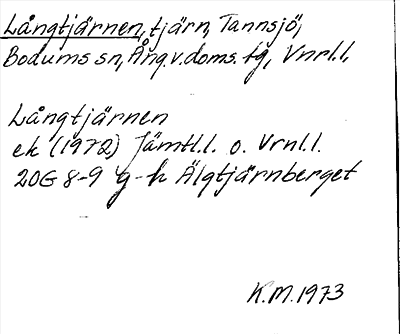 Långtjärnen, tjärn, Tannsjö,
Bodums sn, Ång.v.doms. tg, Vnrl.l.
Långtjärnen
ek (1972) Jämtl.l. o. Vrnl.l.
20G 8-9 g-h Älgtjärnberget
K.M.1973